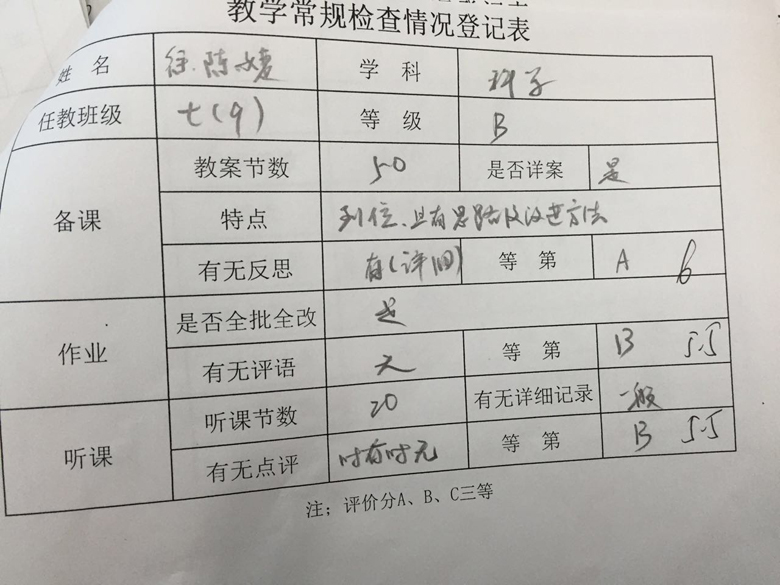 教学常规检查情况登记表
姓名 徐陈媛 学科 科学
任教班级 七(9) 等级 B
备课 教案节数 50 是否详案 是
特点 到位、且有思路及改进方法
有无反思 有(详细) 等第 A 6
作业 是否全批全改 是
有无评语 无 等第 B 5.5
听课 听课节数 20 有无详细记录 一般
有无点评 时有时无 等第 B 5.5
注；评价分A、B、C三等